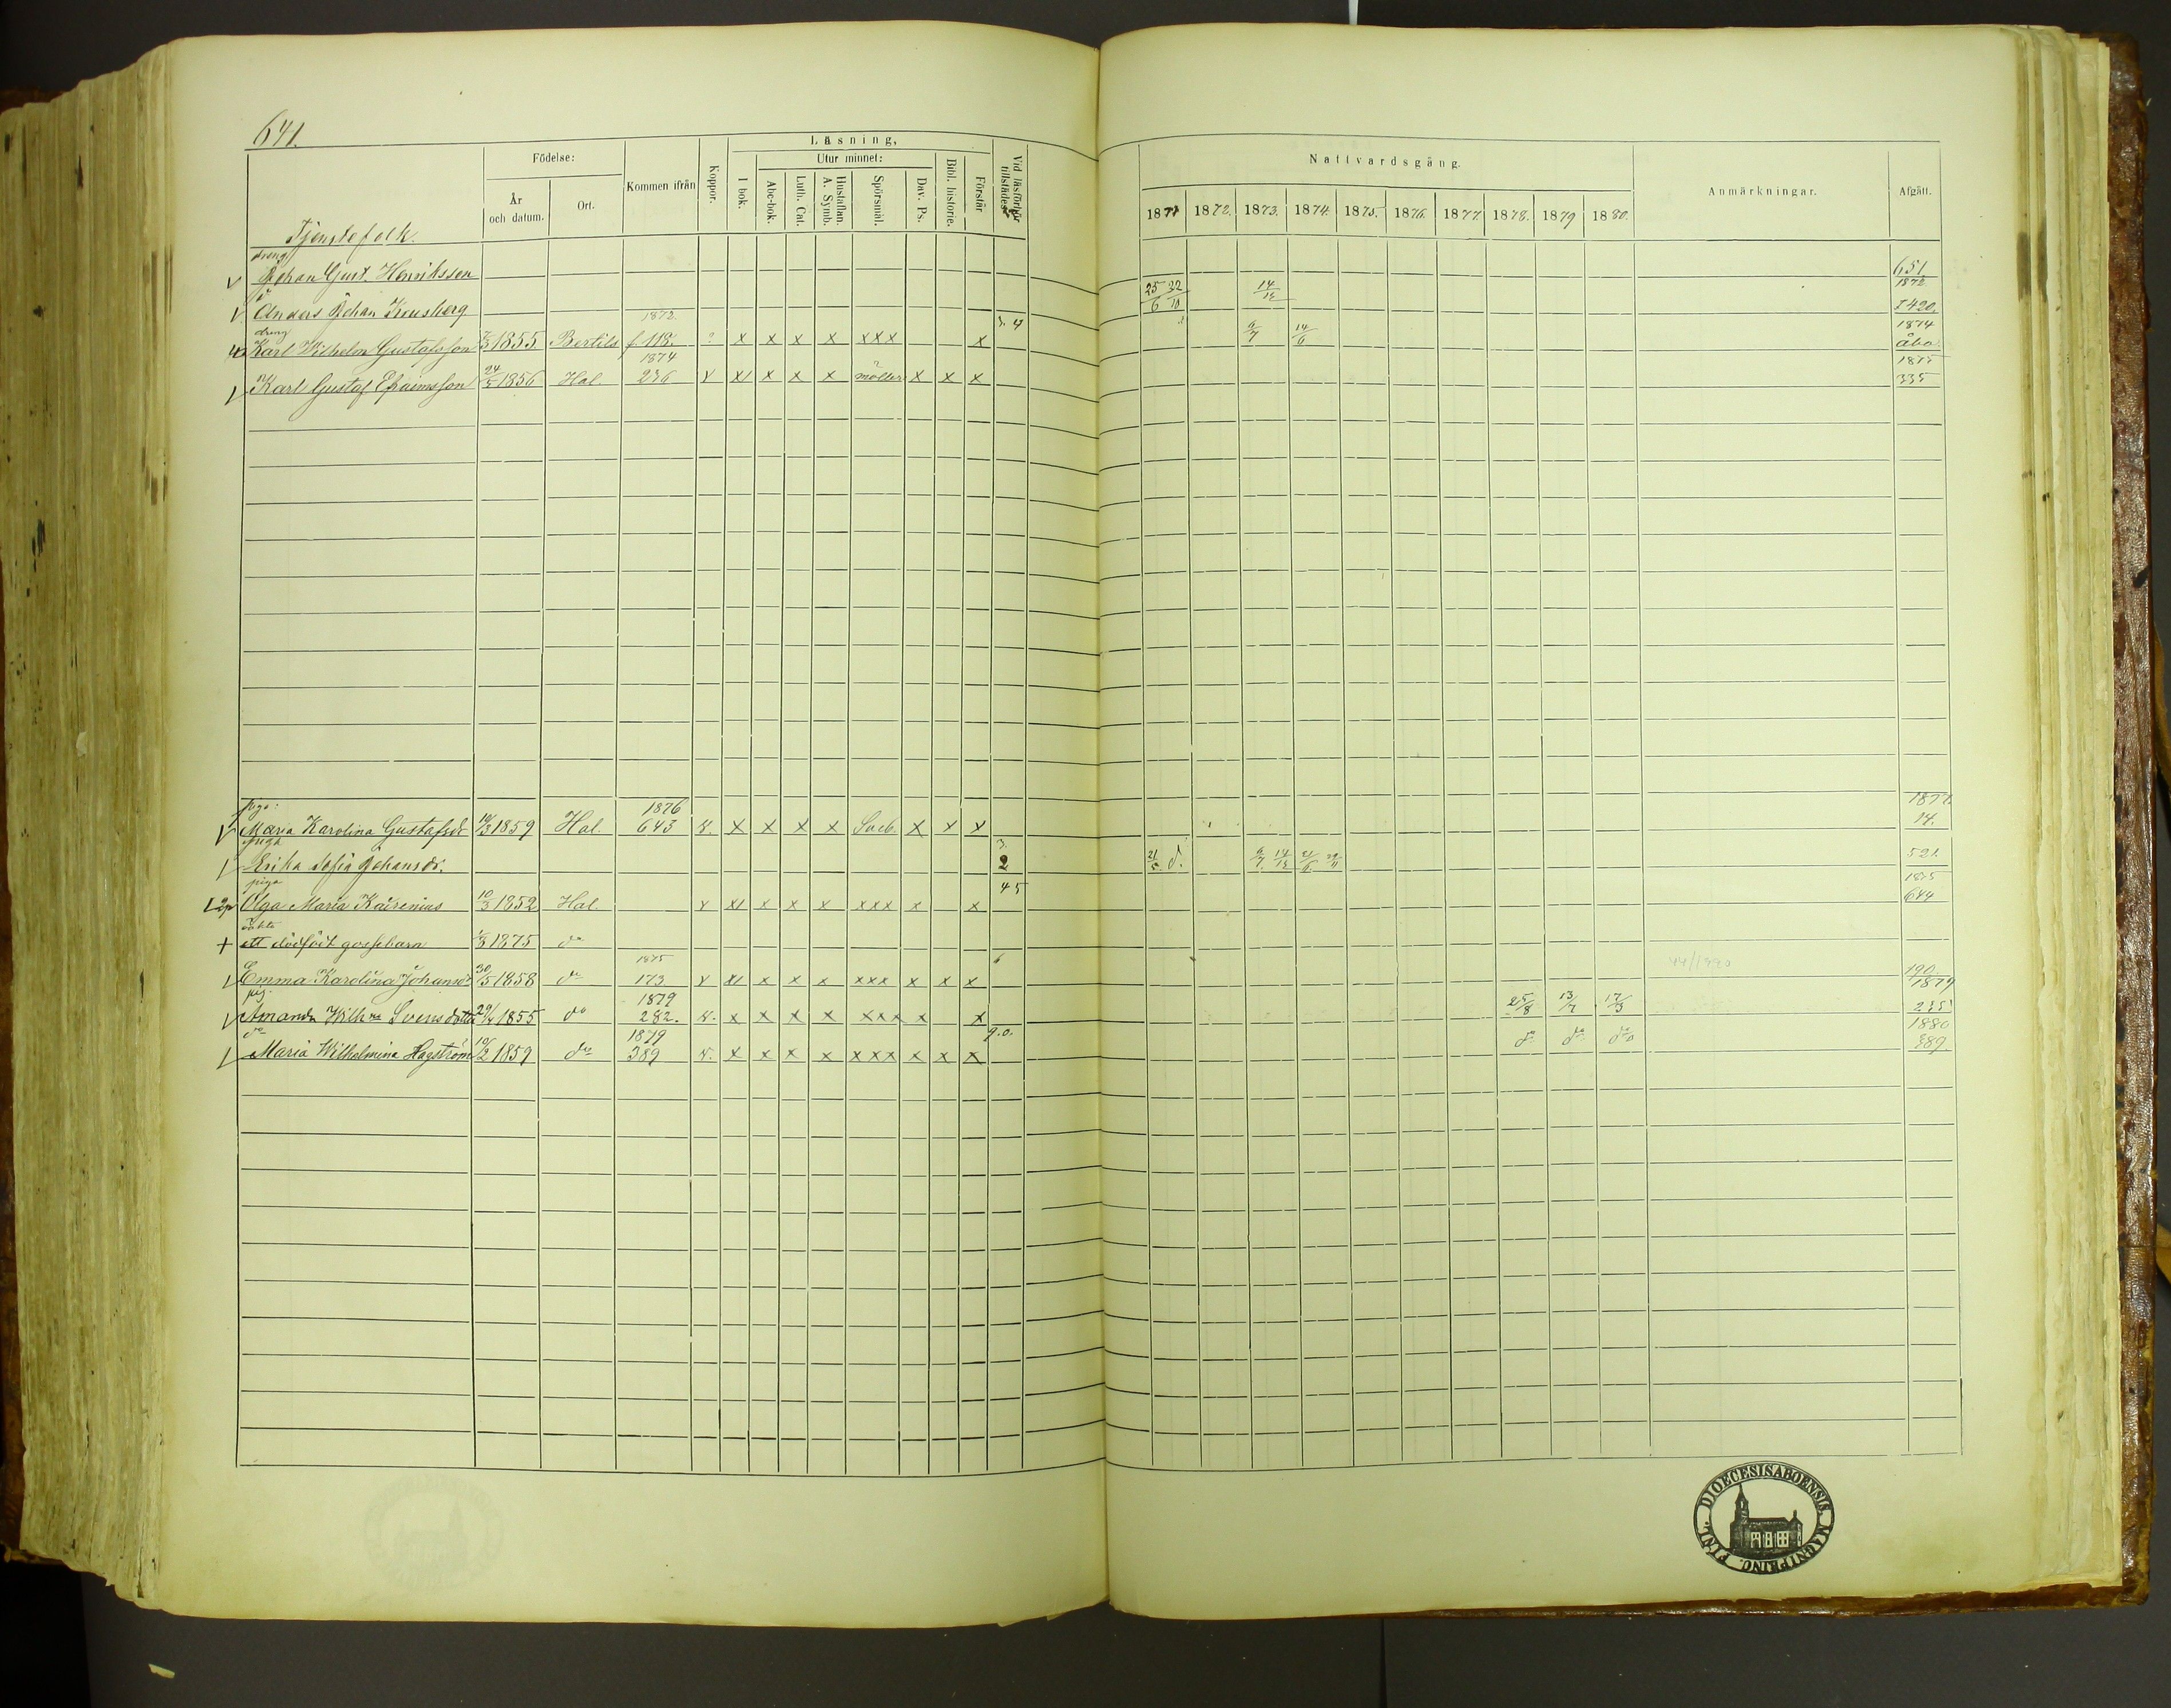 641.
Födelse:
År och datum.
Ort.
Kommen ifrån
Koppor.
Läsning,
I bok.
Utur minnet:
Abc-bok.
Luth. Cat.
Hustaflan. A. Symb.
Spörsmål.
Dav. Ps.
Bibl. historie.
Förstår
Vid läsförhör tillstädes
Nattvardsgång.
1871 1872. 1873. 1874. 1875. 1876. 1877. 1878. 1879 1880.
Anmärkningar.
Afgått.
Tjenstefolk.
dreng
Johan Gust. Henriksson 651.
do 25/6 22/10 14/12 1872
Anders Johan Kreusberg 1420.
dreng 1872. 3. 4 9/7 14/6 1874
Karl Wilhelm Gustafsson 7/3 1855 Bertils f 118. ? x x x x xxx x åbo
1874 1875
Karl Gustaf Efraimsson 24/5 1856 Hal. 236 v xi x x x möller x x x 335
piga: 1876 1877.
Maria Karolina Gustafsdr 10/3 1859 Hal. 643 v. x x x x Sveb. x x x 14.
piga 3.
Erika Sofia Johansdr. 2 d. 9/7 14/12 21/6 29/11 521.
piga 45 1875
Olga Maria Kairenius 10/3 1852 Hal v xi x x x xxx x x 644
oäkta
+ ett dödfödt gossebarn 1875 do
1875 6 44/1880
Emma Karolina Johansdr 30/5 1858 do 173 v xi x x x xxx x x x 190.
pig. 1879 25/8 13/7 17/3 1879
Amanda Wilhna Svensdotter 29/4 1855 do 282. v. x x x x xxx x x 235
do 1879 9.0. do do do 1880
Maria Wilhelmina Hagström 10/2 1859 do 389 v. x x x x xxx x x x 389.
FINL. DIOECESIS ABOENSIS. MAGNI PRINC.